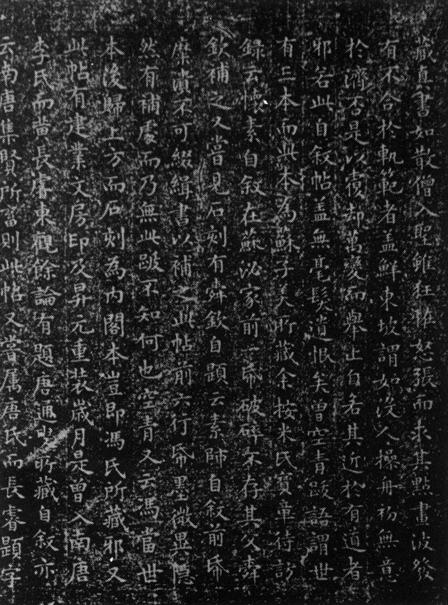 藏真書如散僧入聖雖狂恠怒張而求其點畫波發
有不合於軌範者蓋鮮東坡謂如没人操舟初無意
於濟否是以覆却萬變而舉止自若其近於有道者
邪若此自敘帖蓋無毫髮遺恨矣曾空青跋語謂世
有三本而此本為蘇子美所藏余按米氏寶章待訪
錄云懷素自敘在蘇泌家前一帋破碎不存其父舜
欽補之又嘗見石刻有舜欽自題云素師自敘前帋
糜潰不可綴緝書以補之此帖前六行帋墨微異隱
然有補處而乃無此跋不知何也空青又云馮當世
本後歸上方而石刻為内閣本豈即馮氏所藏邪又
此帖有建業文房印及昇元重装歲月是曾入南唐
李氏而黄長睿東觀餘論有題唐通叟所藏自敘亦
云南唐集賢所畜則此帖又嘗屬唐氏而長睿題字